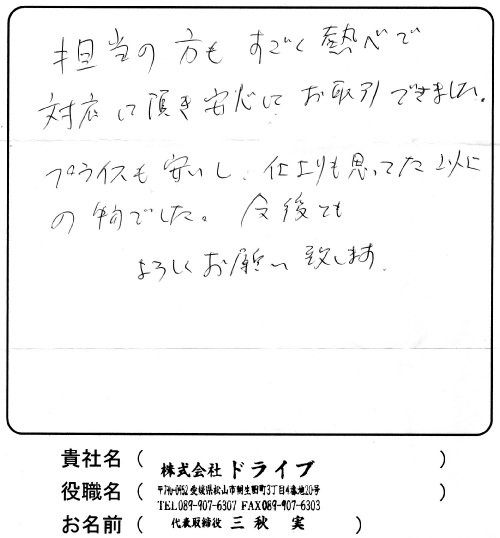 担当の方も すごく熱心で
対応して頂き安心して お取引できました。
プライスも安いし、仕上りも思ってた以上
の物でした。 今後とも
よろしくお願い致します。
貴社名 ( 株式会社 ドライブ )
役職名 ( 〒790-0952 愛媛県松山市朝生田町3丁目4番地20号 )
TEL.089-907-6307 FAX089-907-6303
お名前 ( 代表取締役 三秋 実 )